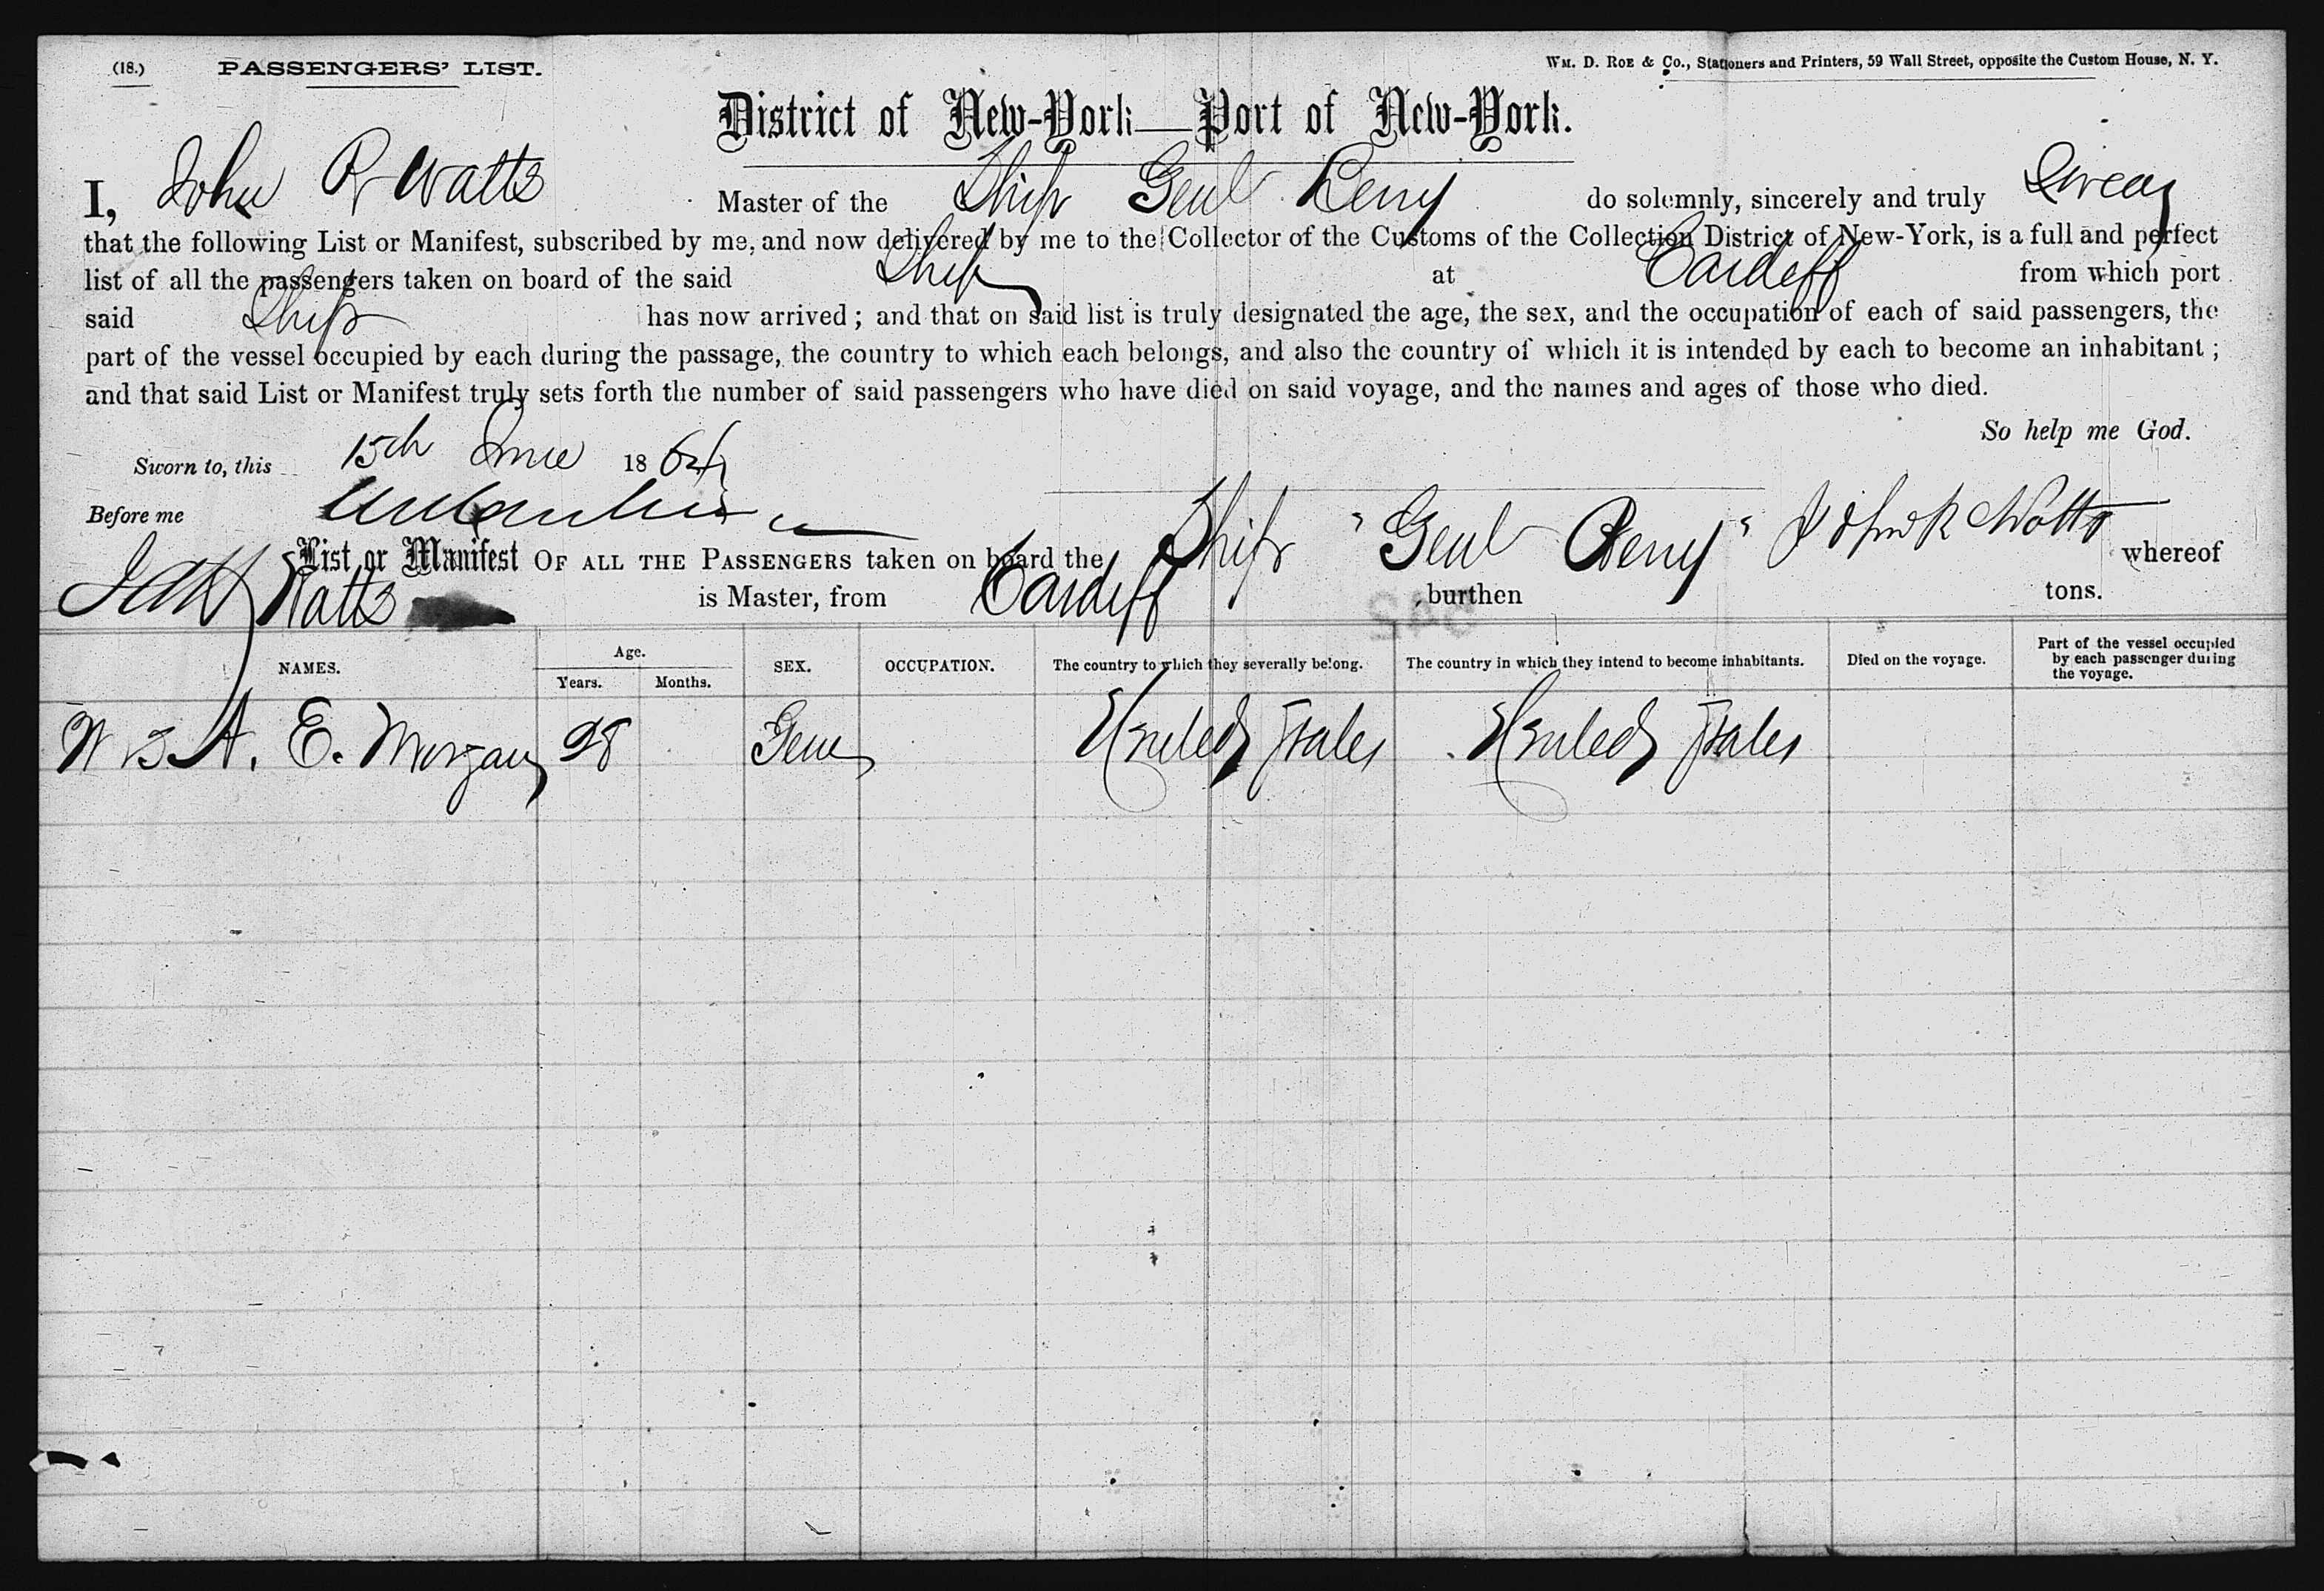 (18.) PASSENGERS' LIST. Wm. D. Roe & Co., Stationers and Printers, 59 Wall Street, opposite the Custom House, N. Y.
District of New-York—Port of New-York.
I, John R Watts Master of the Ship Genl Berry do solemnly, sincerely and truly Swear
that the following List or Manifest, subscribed by me, and now delivered by me to the Collector of the Customs of the Collection District of New-York, is a full and perfect
list of all the passengers taken on board of the said Ship at Cardiff from which port
said Ship has now arrived; and that on said list is truly designated the age, the sex, and the occupation of each of said passengers, the
part of the vessel occupied by each during the passage, the country to which each belongs, and also the country of which it is intended by each to become an inhabitant;
and that said List or Manifest truly sets forth the number of said passengers who have died on said voyage, and the names and ages of those who died.
So help me God.
Sworn to, this 15th June 1864
Before me John R Watts
List or Manifest OF ALL THE PASSENGERS taken on board the Ship "Genl Berry" whereof
Watts is Master, from Cardiff burthen tons.
NAMES. Age. Years. Months. SEX. OCCUPATION. The country to which they severally belong. The country in which they intend to become inhabitants. Died on the voyage. Part of the vessel occupied by each passenger during the voyage.
A. E. Morgan 28 United States United States